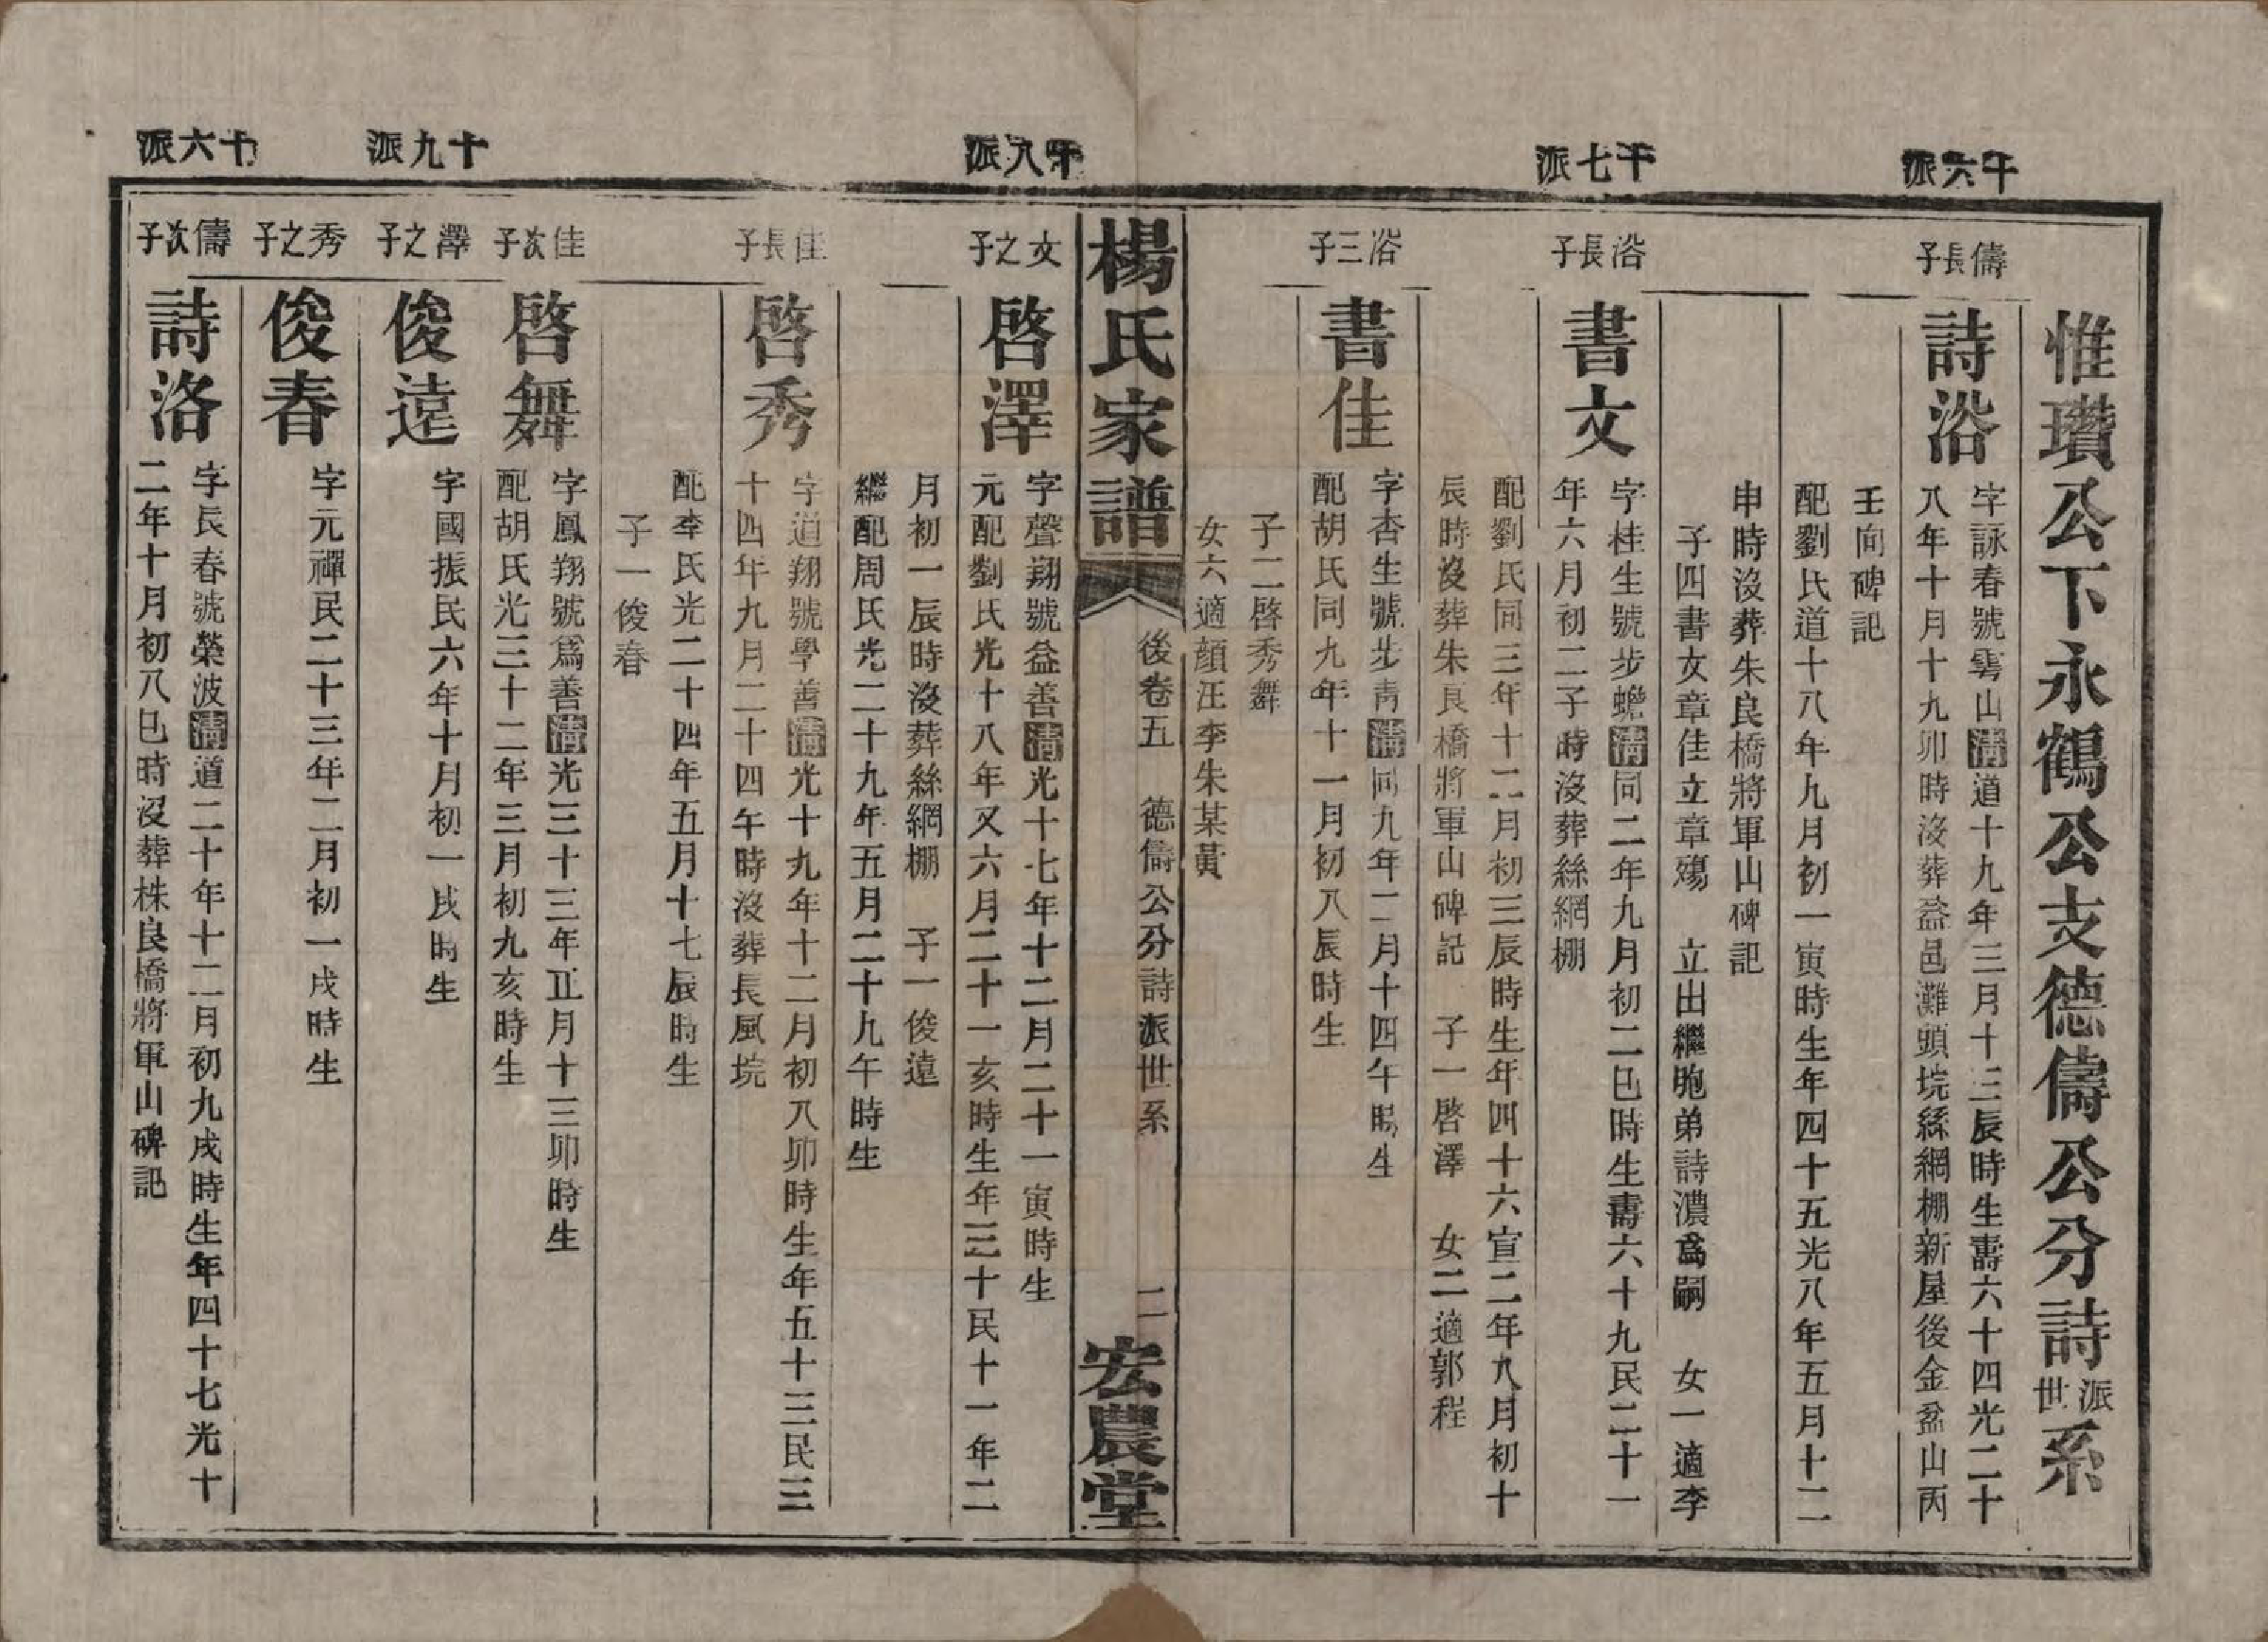 十六派
十七派
十八派
十九派
十六派
惟瓚公下永鶴公支德儔公分詩派世系
儔長子
詩浴
字詠春號雩山清道十九年三月十三辰時生壽六十四光二十
八年十月十九卯時沒葬益邑灘頭垸絲網棚新屋後金盆山丙
壬向碑記
配劉氏道十八年九月初一寅時生年四十五光八年五月十二
申時沒葬朱良橋將軍山碑記
子四書文章佳立章殤 立出繼胞弟詩濃爲嗣 女一適李
浴長子
書文
字桂生號步蟾清同二年九月初二巳時生壽六十九民二十一
年六月初二子時沒葬絲網棚
配劉氏同三年十二月初三辰時生年四十六宣二年八月初十
辰時沒葬朱良橋將軍山碑記 子一啓澤 女二適郭程
浴三子
書佳
字杏生號步青清同九年二月十四午時生
配胡氏同九年十一月初八辰時生
子二啓秀舞
女六適顏汪李朱某黃
楊氏家譜
後卷五 德儔公分詩派世系
二
宏農堂
文之子
啓澤
字聲翔號益善清光十七年十二月二十一寅時生
元配劉氏光十八年又六月二十一亥時生年三十民十一年二
月初一辰時沒葬絲網棚 子一俊遠
繼配周氏光二十九年五月二十九午時生
佳長子
啓秀
字道翔號學善清光十九年十二月初八卯時生年五十三民三
十四年九月二十四午時沒葬長風垸
配李氏光二十四年五月十七辰時生
子一俊春
佳次子
啓舞
字鳳翔號爲善清光三十三年正月十三卯時生
配胡氏光三十二年三月初九亥時生
澤之子
俊遠
字國振民六年十月初一戌時生
秀之子
俊春
字元禪民二十三年二月初一戌時生
儔次子
詩洛
字長春號榮波清道二十年十二月初九戌時生年四十七光十
二年十月初八巳時沒葬株良橋將軍山碑記